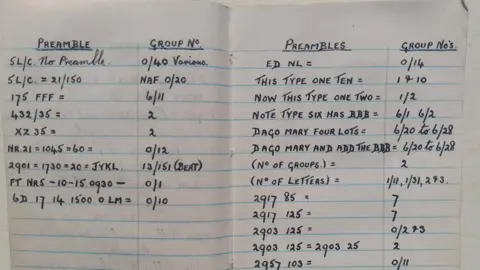 PREAMBLE GROUP NO.
5L/C. No Preamble 0/40 Various.
5L/C. = 21/150 NAF 0/20
175 FFF = 6/11
432/35 = 2
XZ 35 = 2
NR.21 = 1045 = 60 = 0/12
2901 = 1730 = 20 = JYKL. 13/151 (BEAT)
PT NR5 - 10 - 15 0930 - 0/1
6D 17 14 1500 0 LM = 0/10
PREAMBLES GROUP NO'S.
ED NL = 0/14
THIS TYPE ONE TEN = 1 & 10
NOW THIS TYPE ONE TWO = 1/2
NOTE TYPE SIX HAS BBB = 6/1 6/2
DAGO MARY FOUR LOTS = 6/20 to 6/28
DAGO MARY AND ADD THE BBB = 6/20 to 6/28
(NO OF GROUPS.) = 2
(NO OF LETTERS) = 1/11, 1/31, 2 & 3.
2917 85 = 7
2917 125 = 7
2903 125 = 0/2 & 3
2903 125 = 2903 25 2
2957 103 = 0/11